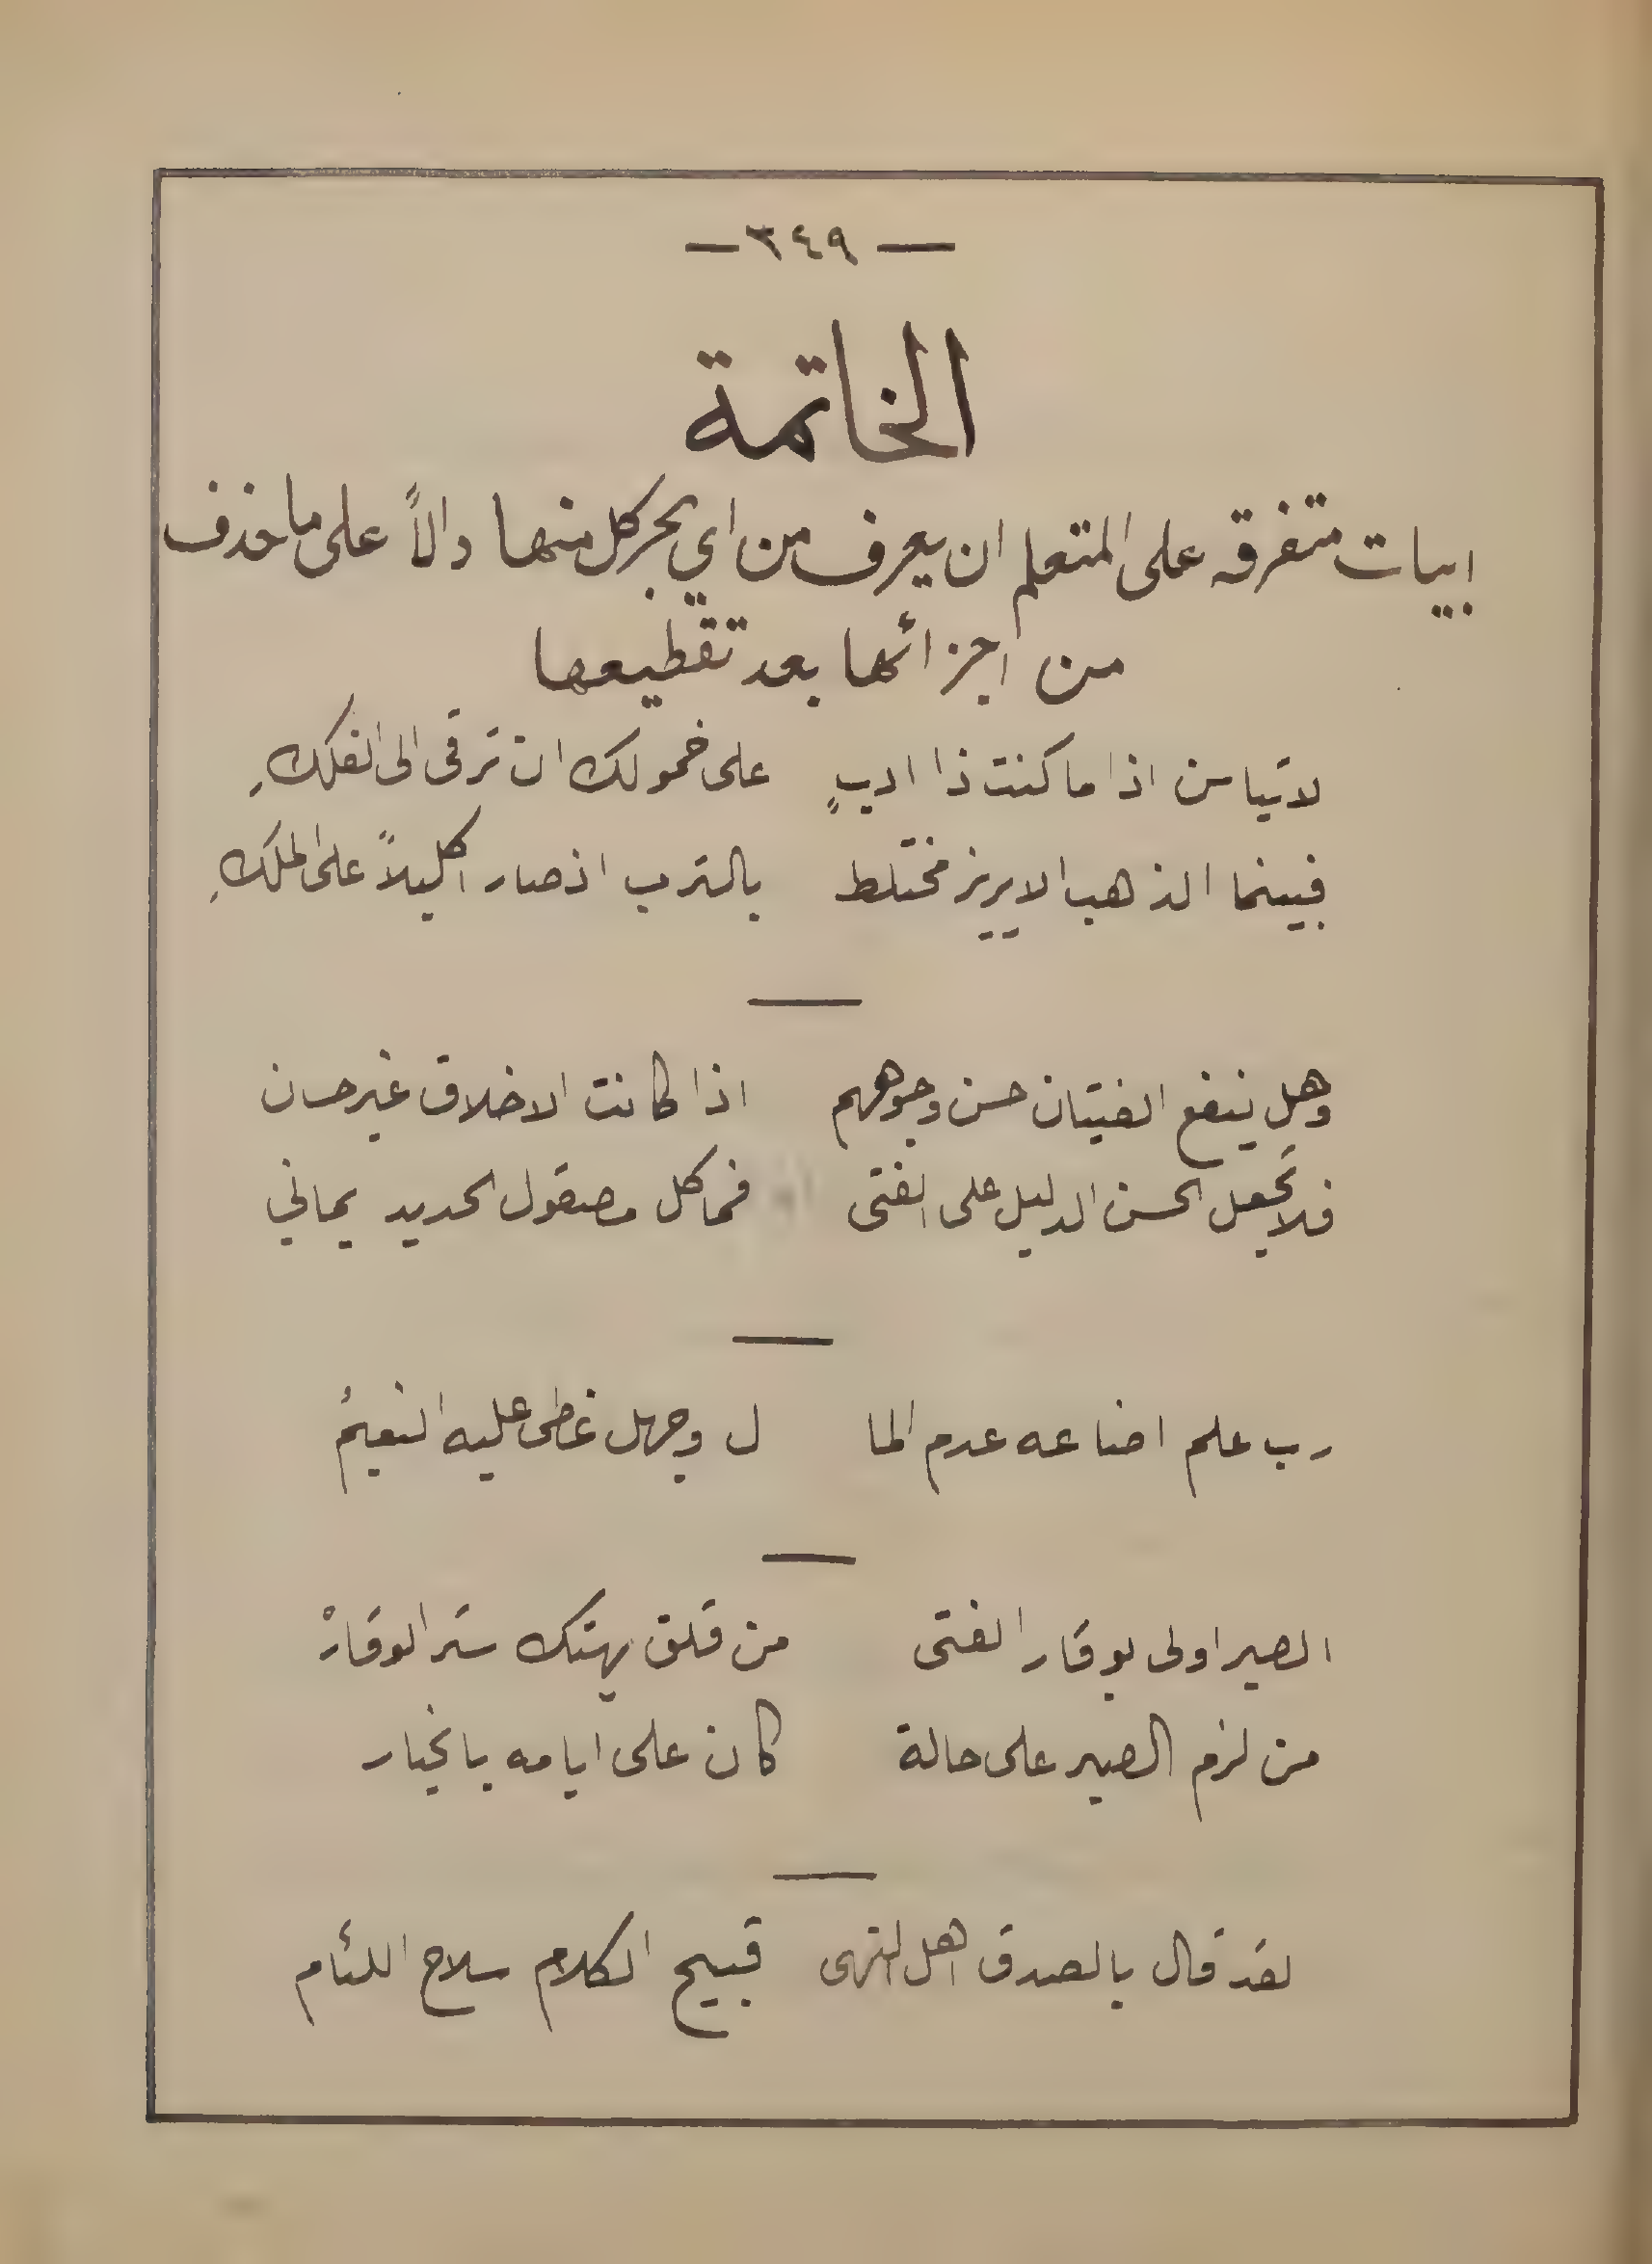 — ٣٤٩ —
الخاتمة
ابيات متفرقه على المتعلم ان يعرف من اي بحر كل منها دالاً على ما حذف
من اجزائها بعد تقطيعها
لا تيا سن اذا ما كنت ذا ادبٍ على خمولك ان ترقى الى الفلكِ
فبينما الذهب الابريز مختلط بالترب اذ صار اكليلاً على الملكِ
وهل ينفع الفتيان حسن وجوههم اذا كانت الاخلاق غير حسان
فلا تجعل الحسن الدليل على الفتى فما كل مصقول الحديد يماني
رب علم اضاعه عدم الما ل وجهل غطى عليه النعيمُ
الصبر اولى بوقار الفتى من قلق يهتك ستر الوقارْ
من لزم الصبر على حالة كان على ايامه بالخيار
لقد قال بالصدق اهل النهى قبيح الكلام سلاح اللئام